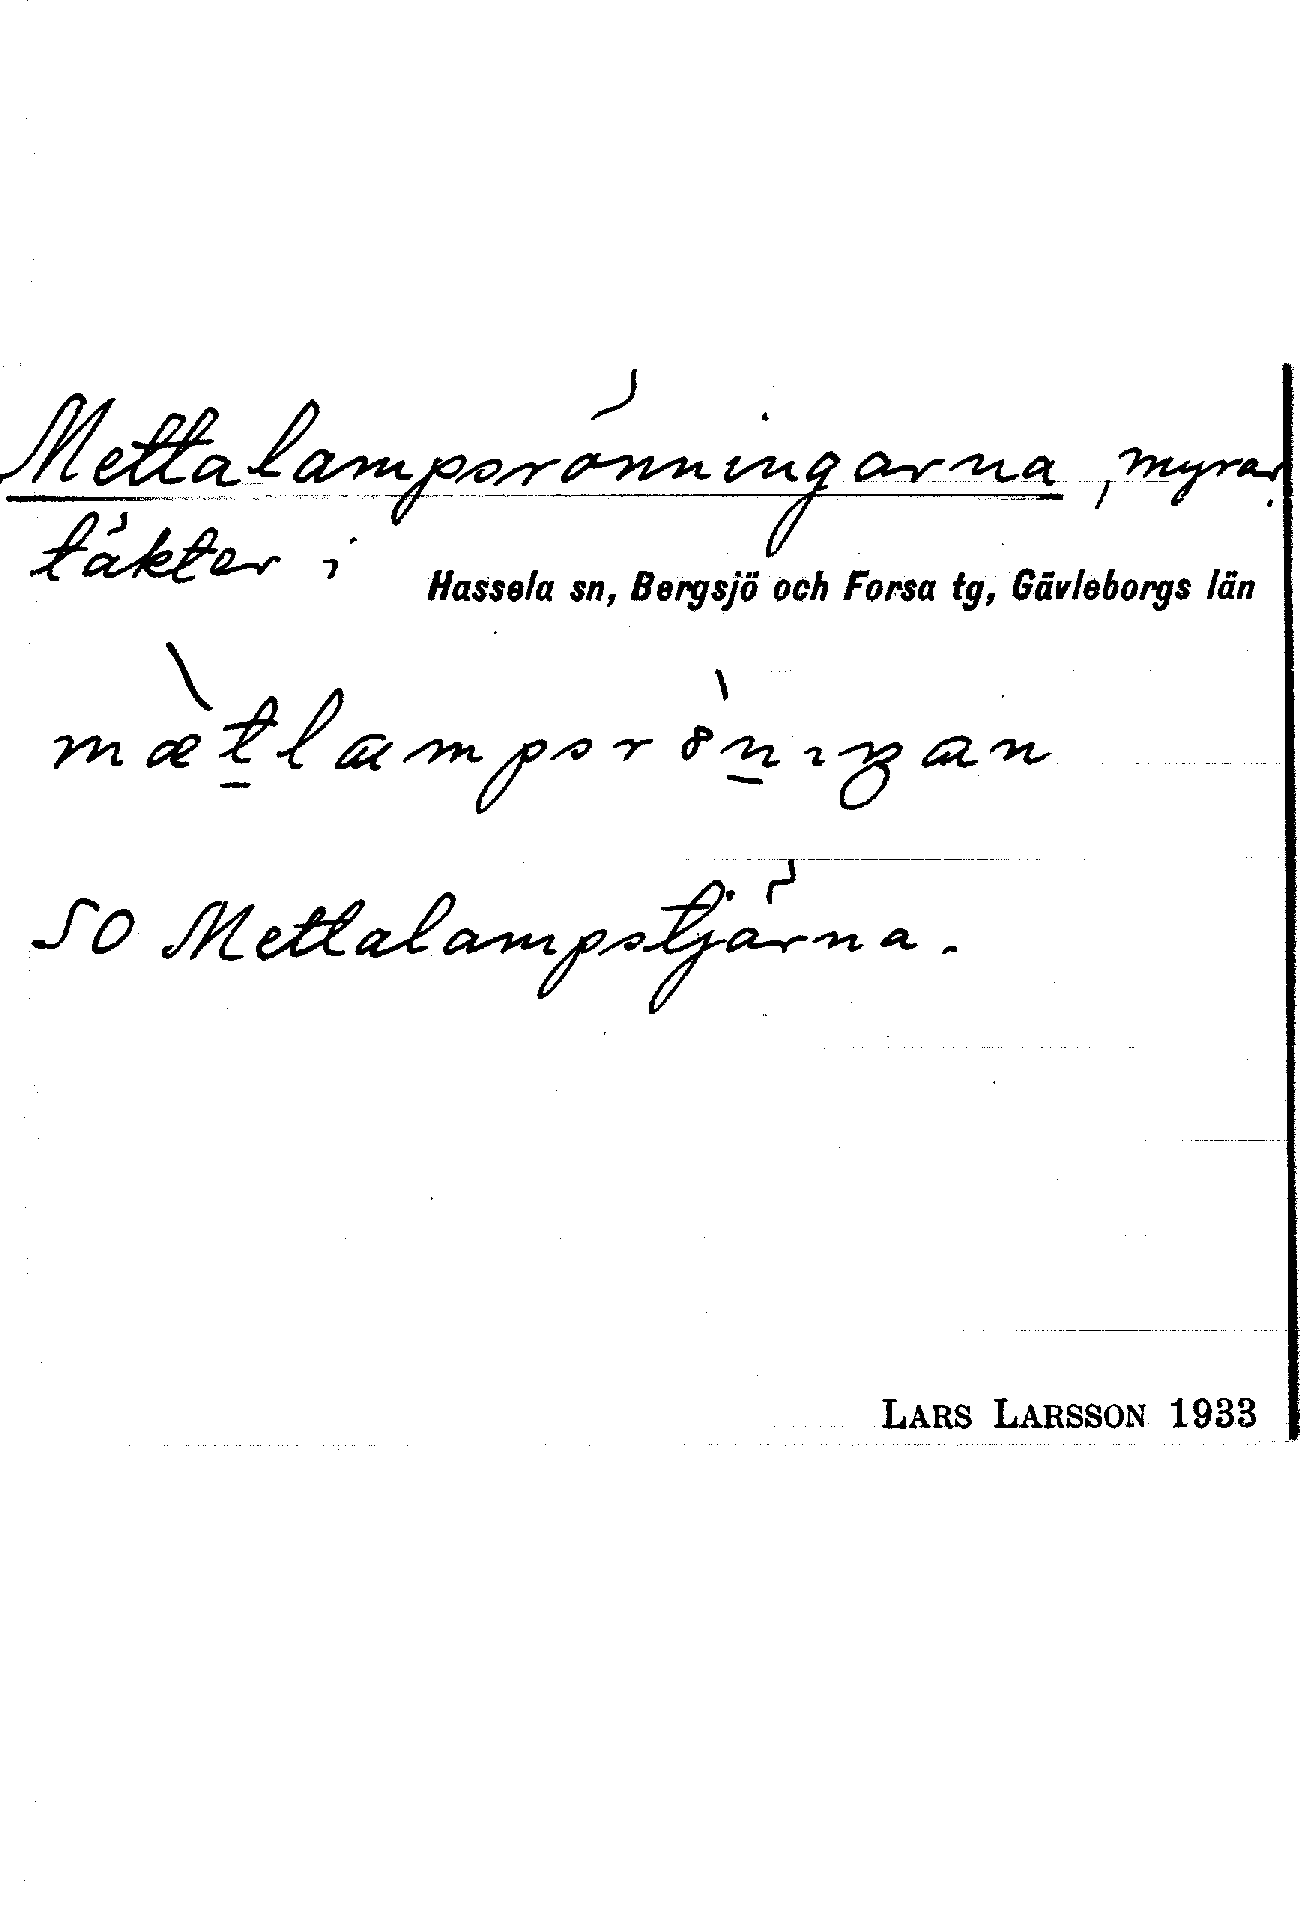 Mettalampsrönningarna, myrar,
täkter i
Hassela sn, Bergsjö och Forsa tg, Gävleborgs län
mæ̀t̲lampsròn̲ıŋan
SO Mettalampstjärna.
LARS LARSSON 1933